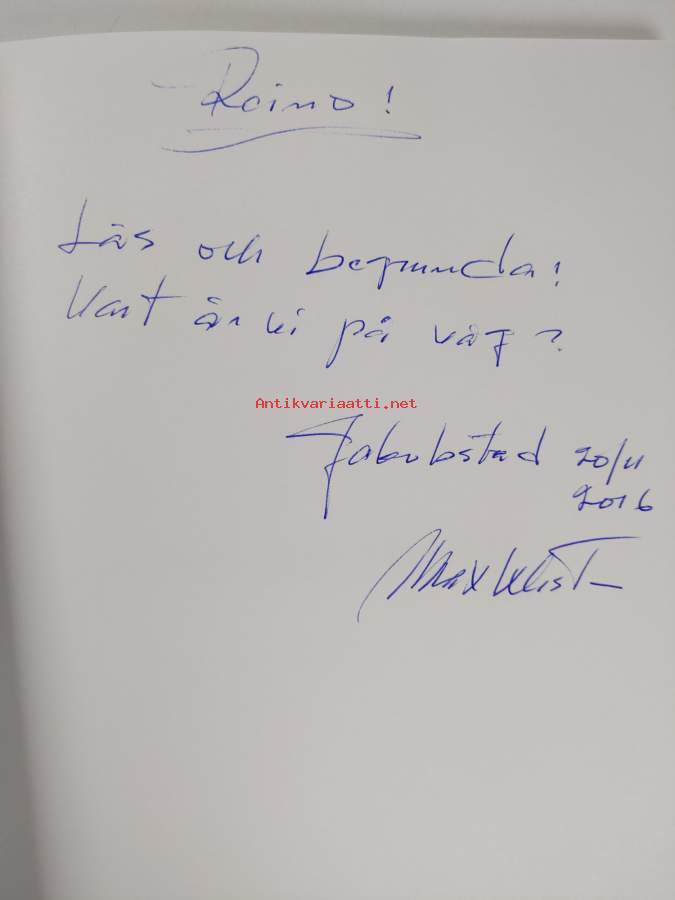 Reino!
Läs och begrunda!
Vart är vi på väg?
Antikvariaatti.net
Jakobstad 20/11
2016
Max